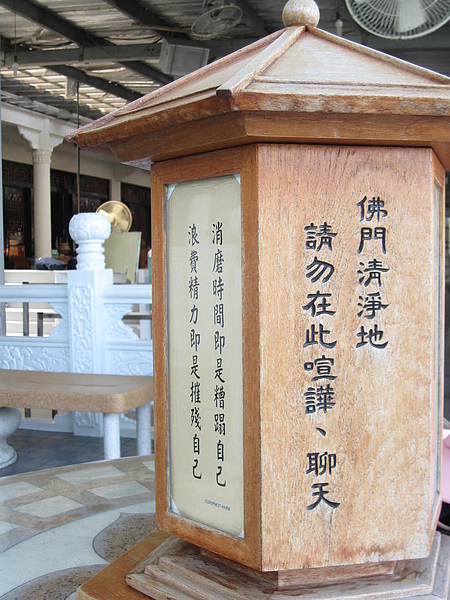 佛門清淨地
請勿在此喧譁、聊天
消磨時間即是糟蹋自己
浪費精力即是摧殘自己